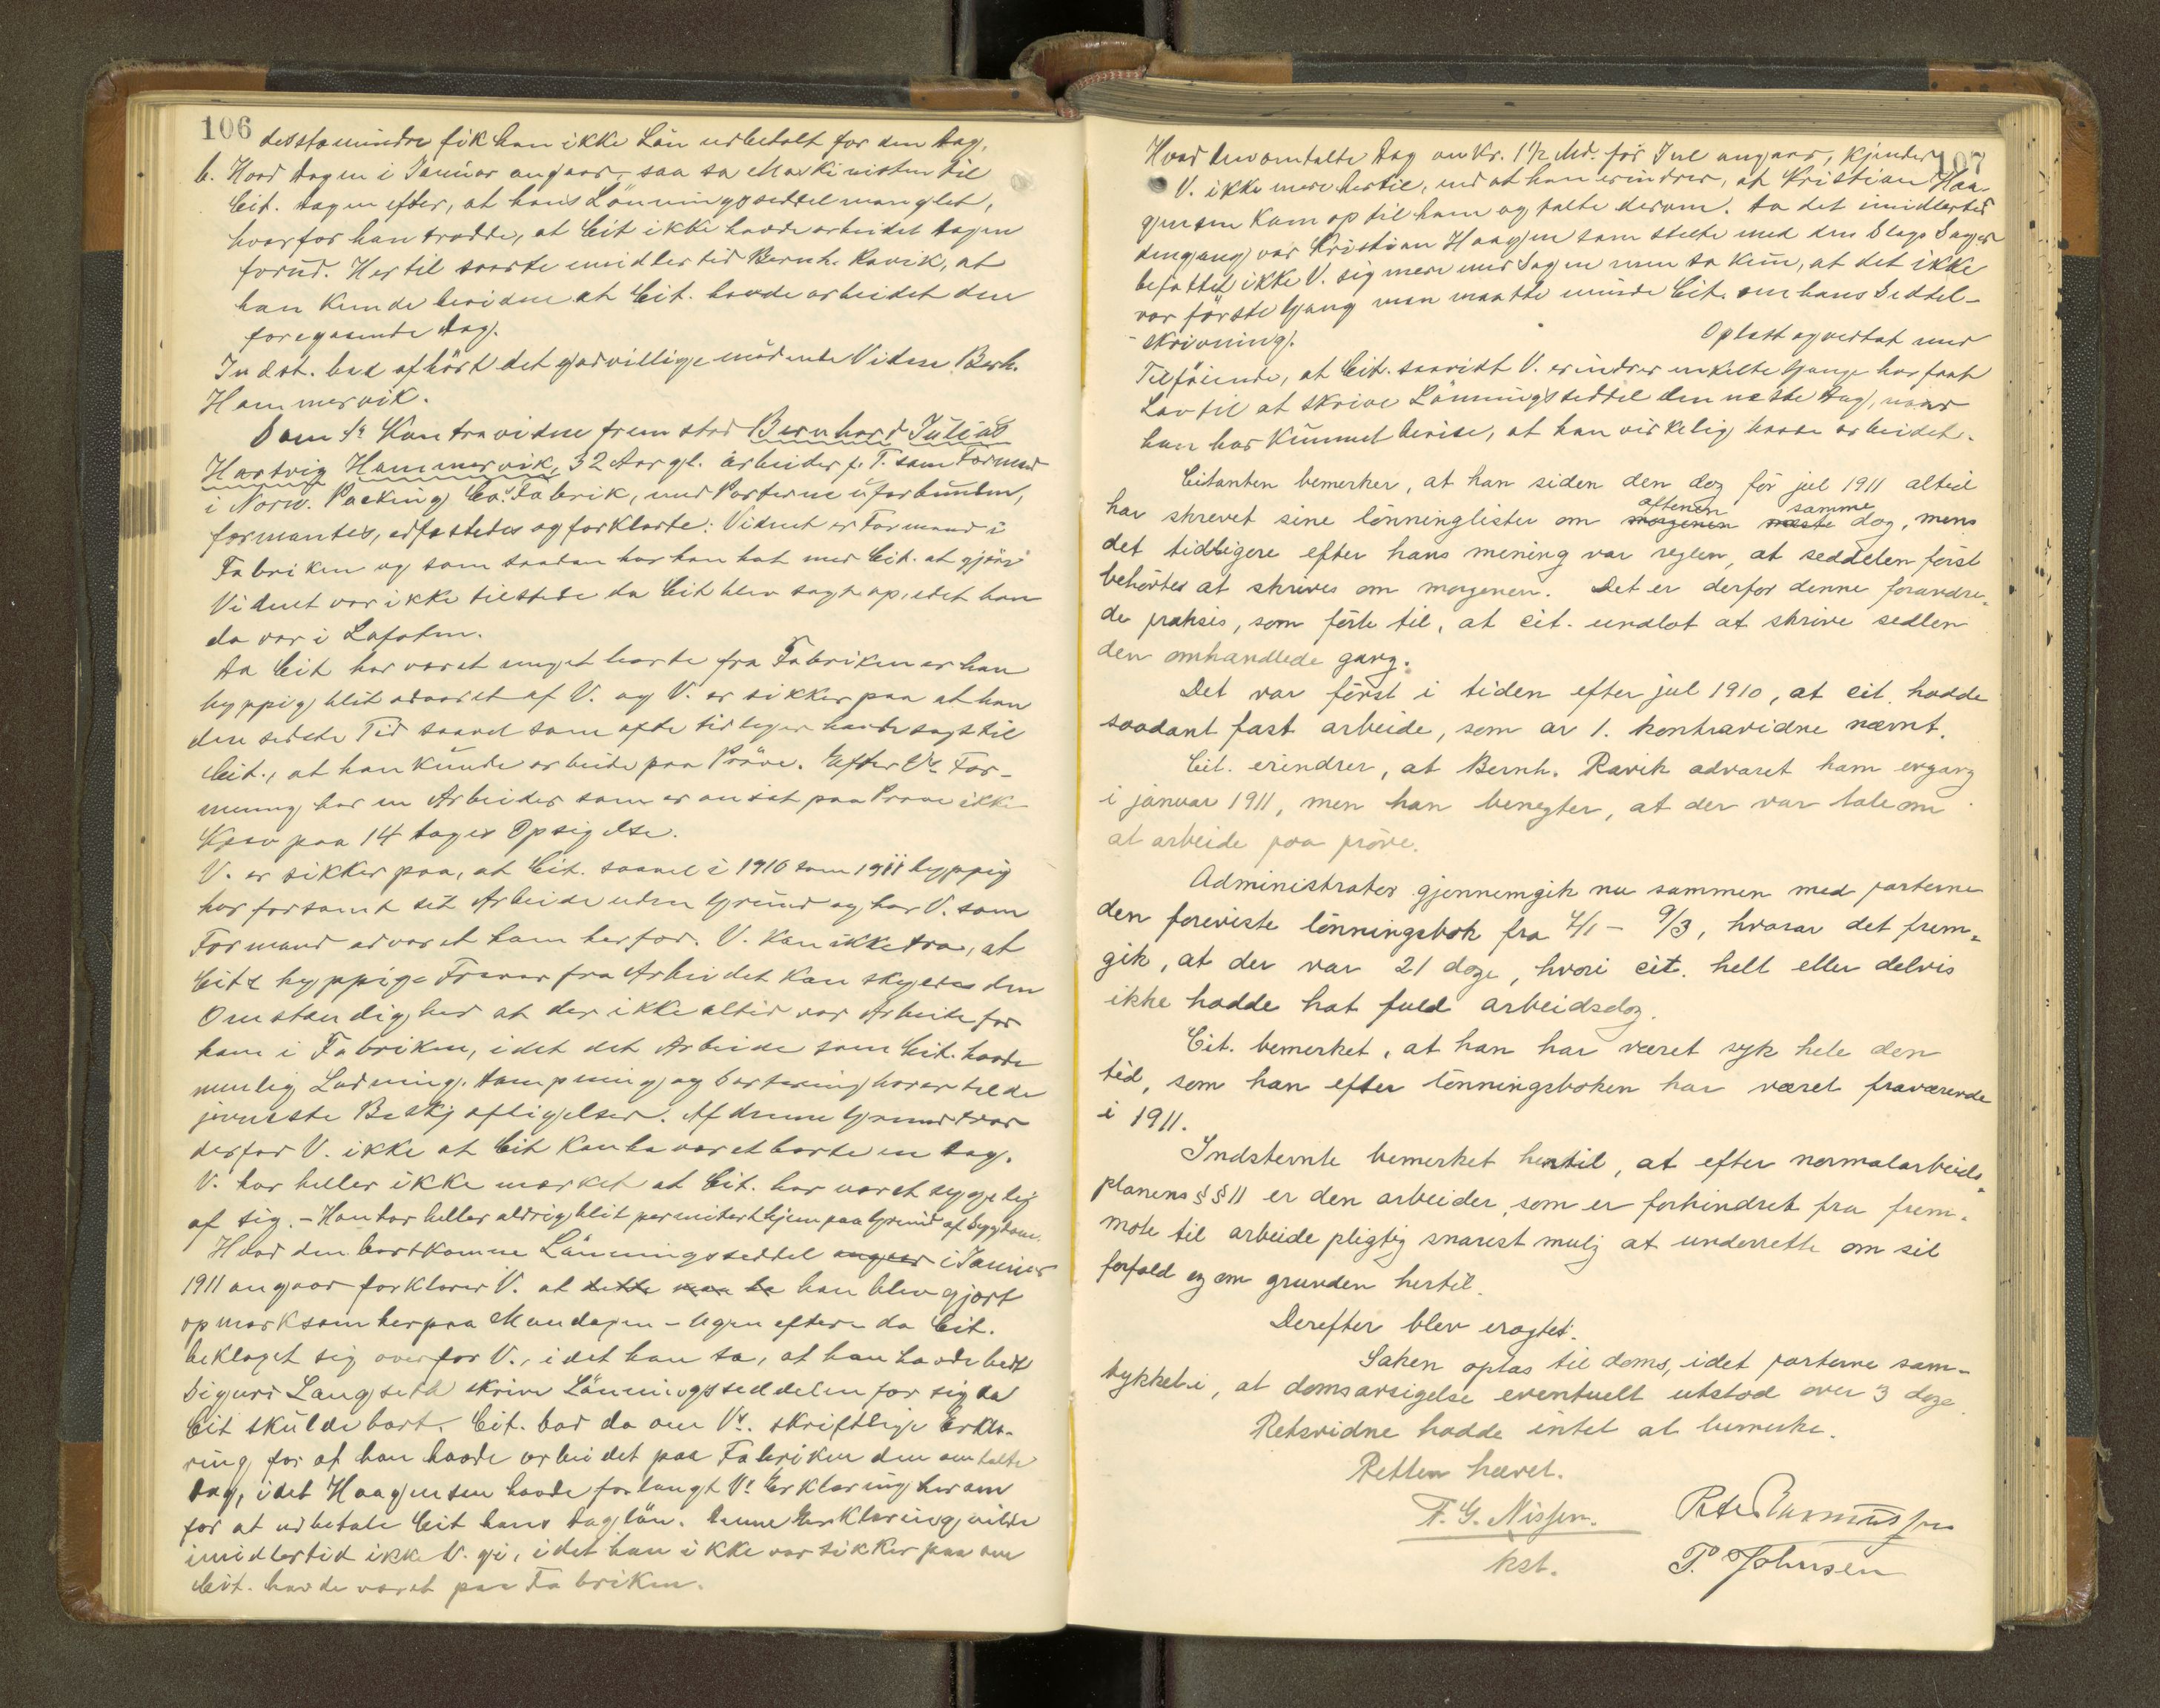 106
destomindre fik han ikke Lön udbetalt for den Dag.
b. Hvad Dagen i Januar angaar, saa sa Maskinisten til
Cit. dagen efter, at hans Lönningsseddel manglet,
hvorfor han trodde, at Cit ikke havde arbeidet dagen
forud. Hertil svarte imidlertid Bernh. Ravik, at
han kunde bevidne at Cit. havde arbeidet den
foregaaende Dag.
Indst. bad afhört det godvillige mödende Vidne Bernh.
Hammervik.
Som 5te Kontravidne fremstod Bernhard Julius
Hartvig Hammervik, 32 Aar gl. arbeider f. T. som Formand
i Norw. Packing Co.s Fabrik, med Parterne uforbunden,
formantes, edfæstedes og forklarte: Vidnet er Formand i
Fabriken og som saadan har han hat med Cit. at gjöre
Vidnet var ikke tilstede da Cit blev sagt op, idet han
da var i Lofoten.
Da Cit har været meget borte fra Fabriken er han
hyppig blit advaret af V. og V. er sikker paa at han
den sidste Tid saavel som ofte tidligere havde sagt til
Cit., at han kunde arbeide paa Pröve. Efter Vs For-
mening har en Arbeider som er ansat paa Pröve ikke
Krav paa 14 dages Opsigelse.
V. er sikker paa, at Cit. saavel i 1910 som 1911 hyppig
har forsömt sit Arbeide uden Grund og har V. som
Formand advaret ham herfor. V. kan ikke tro, at
Cits hyppige Fravær fra Arbeidet kan skyldes den
Omstændighed at der ikke altid var Arbeide for
ham i Fabriken, idet det Arbeide som Cit. havde
nemlig Lodning, dampning og sortering hører til de
jevneste Beskjæftigelser. Af denne Grund tror
derfor V. ikke at Cit kan ha været borte en Dag.
V. har heller ikke mærket at Cit. har været sygelig
af sig. - Han har heller aldrig blit permitert hjem paa Grund af Sygdom.
Hvad den bortkomne Lönningsseddel angaar i Januar
1911 angaar forklarer V. at dette maa ha han blev gjort
opmærksom herpaa Mandagen - Ugen efter - da Cit.
beklaget sig overfor V., idet han sa, at han havde bedt
Sigurd Langseth skrive Lönningsseddelen for sig da
Cit skulde bort. Cit. bad da om Vs. skriftlige Erklæ-
ring for at han havde arbeidet paa Fabriken den omtalte
Dag, idet Haagensen havde forlangt Vs Erklæring herom
for at udbetale Cit hans Daglön. Denne Erklæring vilde
imidlertid ikke V. gi, idet han ikke var sikker paa om
Cit. havde været paa Fabriken.
107
Hvad den omtalte Dag en Kr. 1 1/2 Md. før Jul angaar, kjender
V. ikke mere hertil, end at han erindrer, at Kristian Haa-
gensen kom op til ham og talte derom. Da det imidlertid
dengang var Kristian Haagensen som stelte med den Slags Sager
befattet ikke V. sig mere med Sagen men sa kun, at det ikke
var förste Gang man maatte minde Cit. om hans Seddel-
skrivning.
Oplæst og vedtat med
Tilföiende, at Cit. saavidt V. erindrer enkelte Gange har faat
Lov til at skrive Lönningsseddel den næste Dag, naar
han har kunnet bevise, at han virkelig havde arbeidet.
Citanten bemerker, at han siden den dag för jul 1911 altid
har skrevet sine lönninglister om morgenen aftenen næste samme dag, mens
det tidligere efter hans mening var reglen, at seddelen først
behövtes at skrives om morgenen. Det er derfor denne forandre-
de praksis, som förte til, at cit. undlot at skrive sedlen
den omhandlede gang.
Det var först i tiden efter jul 1910, at cit. hadde
saadant fast arbeide, som av 1. kontravidne nævnt.
Cit. erindrer, at Bernh. Ravik advaret ham engang
i januar 1911, men han benegter, at der var tale om
at arbeide paa pröve.
Administrator gjennemgik nu sammen med parterne
den foreviste lönningsbok fra 4/1 - 9/3, hvorav det frem-
gik, at der var 21 dage, hvori cit. helt eller delvis
ikke hadde hat fuld arbeidsdag.
Cit. bemerket, at han har været syk hele den
tid, som han efter lönningsboken har været fraværende
i 1911.
Indstevnte bemerket hertil, at efter normalarbeids-
planens §§ 11 er den arbeider, som er forhindret fra frem-
möte til arbeide pligtig snarest mulig at underrette om sit
forfald og om grunden hertil.
Derefter blev eragtet:
Saken optas til doms, idet parterne sam-
tykket i, at domsavsigelse eventuelt utstod over 3 dage.
Retsvidne hadde intet at bemerke.
Retten hævet.
F. G. Nissen.
kst.
Peter Rasmussen
P. Johnsen